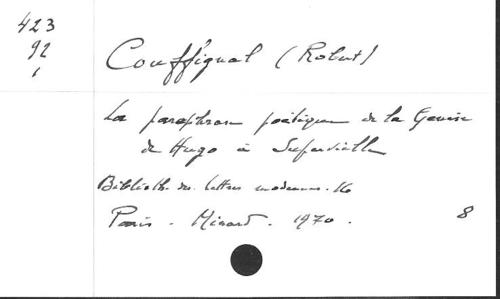 423
92
1
Couffignal (Robert)
La paraphrase poétique de la Genèse
de Hugo à Supervielle
Biblioth. des lettres modernes. 16
Paris - Minard - 1970.
8